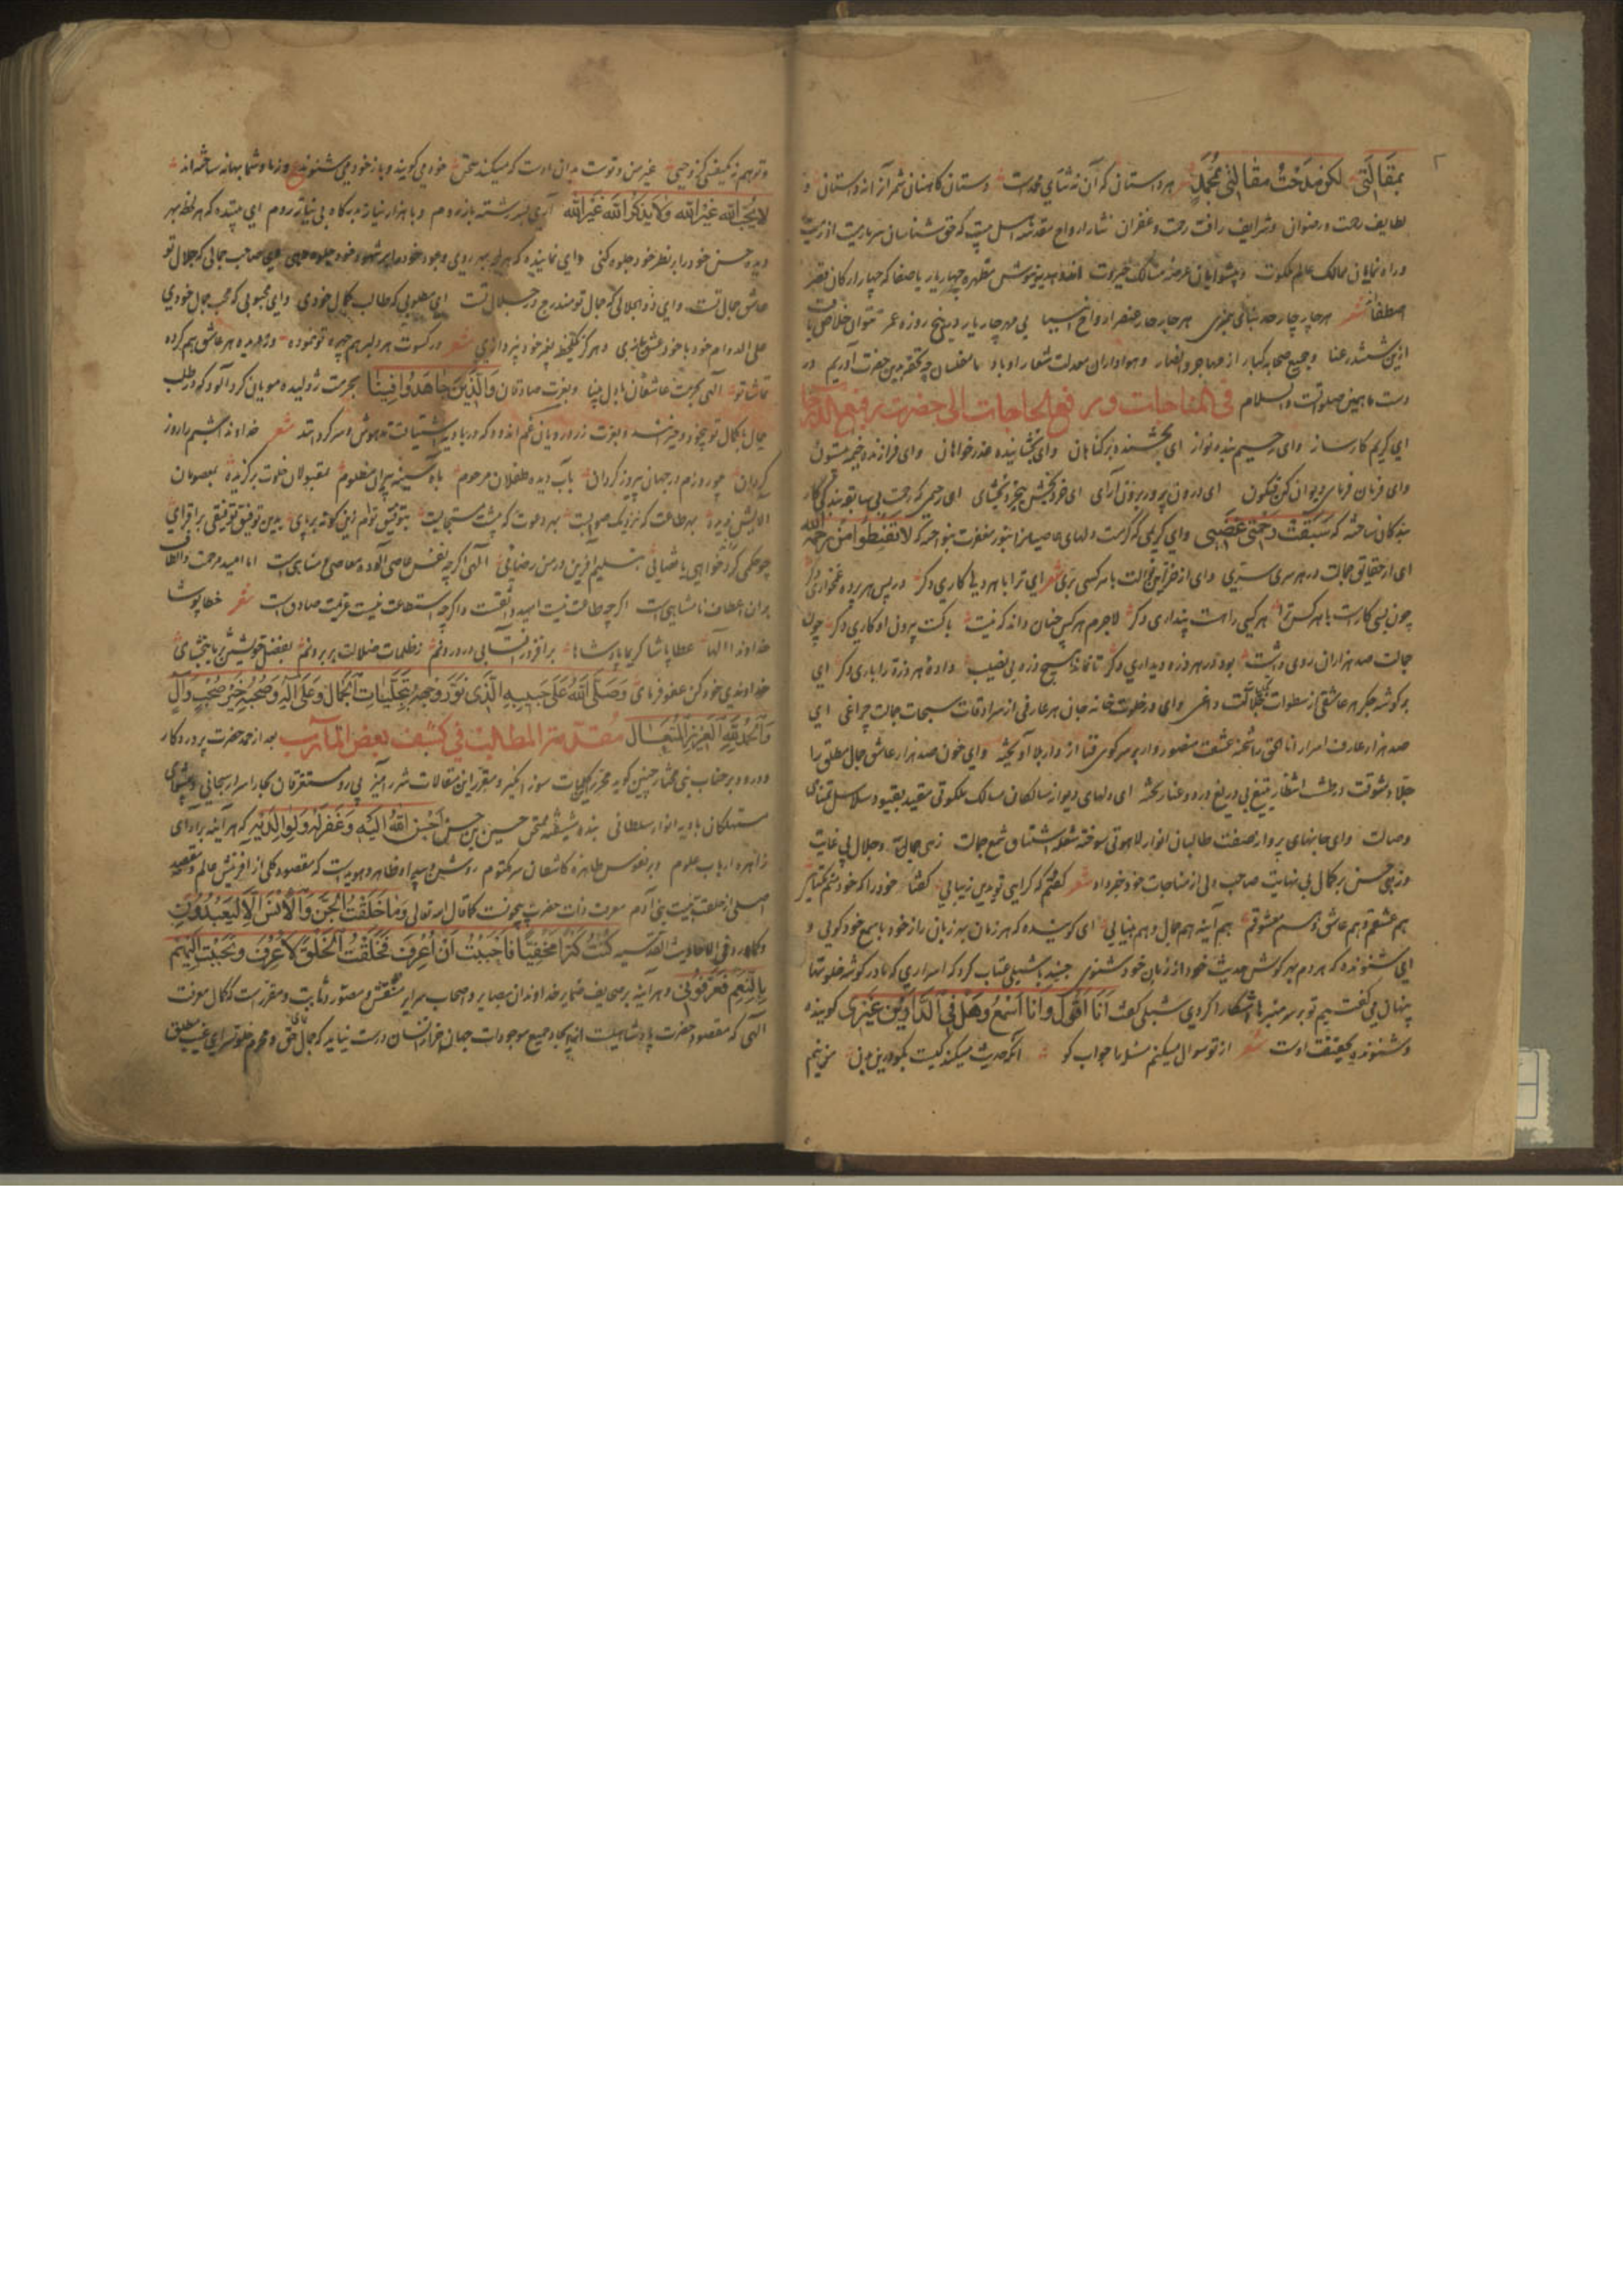 بمقالتی لکن مدحت مقالتی بمحمد هر داستان که آن نه ثنای محمدست دستان کاهنان شمر آنرا نه داستان و
لطایف رحمت و رضوان و شرایف رافت رحمت و غفران نثار ارواح مقدسه
و راه نمایان ممالک عالم ملکوت و پیشوایان عرصه مسالک جبروت چهار یار باصفا که چهار ارکان قصر
اصطفا شعر هر چار چار حد بنای پیمبری هر چار چار عنصر ارواح انبیا بی مهر چار یار درین پنج روزه عمر نتوان خلاص یافت
ازین ششدر عنا و جمیع صحابه کبار از مهاجر و انصار و هواداران معدلت شعار او باد ما مفلسان چه تحفه بدین حضرت آوریم در
دست ما همین صلواتست والسلام فی المناجات و رفع الحاجات الی حضرت رفیع الدرجات
ای کریم کارساز وای رحیم بنده نواز ای بخشنده بر گناهان وای بخشاینده عذرخواهان وای فرازنده خیمه ستون
وای فرمان فرمای دیوان کن فیکون ای درون پرور برون آرای ای خردبخش بیخرد بخشای ای رحیمی که رحمت بی
بندگان ساخته که سبقت رحمتی غضبی وای کریمی که کرمت دلهای عاصیانرا بنور مغفرت بنواخته که لا تقنطوا من رحمة الله
ای از حقایق جمالت در هر سری سری وای از خزاین نوالت با هر کسی بری شعر ای ترا با هر دلی کاری دگر در پس هر پرده غمخواری دگر
چون بسی کارست با هر کس ترا هر کسی راهست پنداری دگر لاجرم هر کس چنان داند که نیست با کست بیرون او کاری دگر چون
جمالت صد هزاران روی داشت بود در هر ذره دیداری دگر تا نماند هیچ ذره بی نصیب داده هر ذره را یاری دگر ای
بر گوشه جگر هر عاشقی از سطوات تجلی جلالت داغی وای در خلوت خانه جان هر عارفی از سرادقات سبحات جمالت چراغی ای
صد هزار عارف اسرار انا الحق را شحنه عشقت منصوروار بر سر کوی فنا از دار بلا آویخته وای خون صد هزار عاشق جمال مطلق را
جلاد شوقت در طشت انتظار بتیغ بی دریغ درد و عنا ریخته ای دلهای دیوانه سالکان مسالک ملکوتی مقید بقیود سلاسل تمنای
وصالت وای جانهای پروانه صفت طالبان انوار لاهوتی سوخته شعله اشتیاق شمع جمالت زهی جمال و جلال بی غایت
وزهی حسن بر کمال بی نهایت صاحب دلی از مناجات خود خبر داد شعر گفتم که کرایی تو بدین زیبایی گفتا خود را که خود منم یکتایی
هم عشقم و هم عاشق و هم معشوقم هم آینه هم جمال و هم بینایی ای گوینده که هر زمان بهر زبان راز خود با سمع خود گویی و
ای شنونده که هر دم بهر گوش حدیث خود از زبان خود شنوی جنید با شبلی عتاب کرد که اسراری که ما در گوشه خلوتها
پنهان می گفتیم تو بر سر منبرها آشکارا کردی شبلی گفت انا اقول وانا اسمع وهل فی الدارین غیری گوینده
و شنونده بحقیقت اوست شعر از تو سوال میکنم مسئله را جواب گو آنکه حدیث میکند کیست بگو درین بدن من نیم
و تو هم نه غیر من و توست بدان اوست که میکند سخن خود می گویند و باز خود می شنوند وز ما و شما بهانه ساخته اند
لا یحب الله غیر الله ولا یذکر الله غیر الله آری بسر رشته باز روم و با هزار نیاز بدرگاه بی نیاز روم ای بیننده که هر لحظه بهر
دیده حسن خود را بر نظر خود جلوه کنی وای نماینده که هر لحظه بهر روی وجود خود را بر شهود خود جلوه دهی ای صاحب جمالی که جلال تو
عاشق جمال تست وای ذوالجلالی که جمال تو مندرج در جلال تست ای مطلوبی که طالب کمال خودی وای محبوبی که محب جمال خودی
علی الدوام خود با خود عشق بازی و هرگز یک لحظه بغیر خود نپردازی شعر در کسوت هر دلبر هم چهره تو نموده وز دیده هر عاشق هم کرده
تماشا تو الهی بحرمت عاشقان بادل بینا و بعزت صادقان والذین جاهدوا فینا بحرمت ژولیده مویان گردآلود که در طلب
جمال با کمال تو بیخود و حیرانند و بعزت زرد رویان غم اندود که در بادیه اشتیاقت مدهوش و سرگردانند شعر خداوندا شبم را روز
گردان چو روزم در جهان پیروز گردان بآب دیده طفلان مرحوم بآه سینه پیران مظلوم بمقبولان خلوت برگزیده بمعصومان
آلایش ندیده بهر طاعت که نزدیک صوابست بهر دعوت که پیشت مستجابست بدین توفیق توفیقی برافزای
چو حکمی کرد خواهی یا قضایی بتسلیم آفرین در من رضایی الهی اگرچه نفس عاصی آلوده معاصی و مناهی است اما امید مرحمت والطاف
بدان اعطاف نامتناهی است اگرچه طاعت نیست امید واثقست واگرچه استطاعت نیست عزیمت صادق است شعر خطاپوشا
خداوندا الها عطاپاشا کریما پادشاها برافروز آفتابی در درونم ز ظلمات ضلالت بر برونم بفضل خویشتن بر ما ببخشای
خداوندی خود کن عفو فرمای وصلی الله علی حبیبه الذی نور وجهه بتجلیات الجمال وعلی آله وصحبه خیر صحب وآل
والحمد لله العزیز المتعال مقدمة المطالب فی کشف بعض المآرب بعد از حمد حضرت پروردگار
و درود بر جناب نبی مختار چنین گوید محرر این کلمات سوزانگیز و مقرر این مقالات شررآمیز پی رو مستغرقان بحار اسرار سبحانی
مستهلکان بادیه انوار سلطانی بنده شیفته ممتحن حسین بن حسن احسن الله الیه وغفر له ولوالدیه که هر آینه بر آرای
زاهره ارباب علوم و بر نفوس طاهره کاشفان سر مکتوم روشن و هویدا و ظاهر و پیداست که مقصود کلی از آفرینش عالم و مقصد
اصلی از خلقت بنیت بنی آدم معرفت ذات حضرت بیچونست کما قال الله تعالی وما خلقت الجن والانس الا لیعبدون
وکما ورد فی الاحادیث القدسیه کنت کنزا مخفیا فاحببت ان اعرف فخلقت الخلق لاعرف وتحببت الیهم
بالنعم فعرفونی و هر آینه بر صحایف ضمایر خداوندان بصایر و صحاب سرایر منقش و مصور و ثابت و مقررست که کمال معرفت
الهی که مقصود حضرت پادشاهیست از ایجاد جمیع موجودات جهان جز از انسان درست نیاید که جمال حق و محرم خلوتسرای غیب مطلق